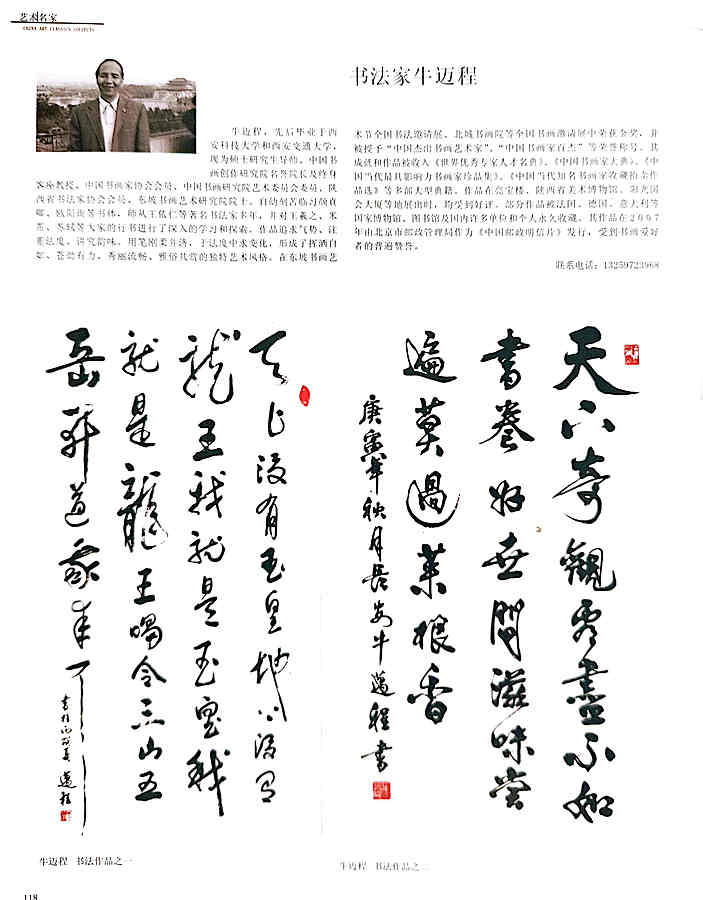 艺术名家
CHINA ART CLASSICS SOCIETY
书法家牛迈程
牛迈程，先后毕业于西
安科技大学和西安交通大学，
现为硕士研究生导师、中国书
画创作研究院名誉院长及终身
客座教授、中国书画家协会会员、中国书画研究院艺术委员会委员、陕
西省书法家协会会员、东坡书画艺术研究院院士。自幼刻苦临习颜真
卿、欧阳询等书体，师从王依仁等著名书法家多年，并对王羲之、米
芾、苏轼等大家的行书进行了深入的学习和探索。作品追求气势、注
重法度、讲究韵味，用笔刚柔并济，于法度中求变化，形成了挥洒自
如、苍劲有力、秀丽流畅、雅俗共赏的独特艺术风格。在东坡书画艺
术节全国书法邀请展、北城书画院等全国书画邀请展中荣获金奖，并
被授予“中国杰出书画艺术家”、“中国书画家百杰”等荣誉称号。其
成就和作品被收入《世界优秀专家人才名典》、《中国书画家大典》、《中
国当代最具影响力书画家珍品集》、《中国当代知名书画家收藏拍卖作
品选》等多部大型典籍。作品在荣宝楼、陕西省美术博物馆、阳光国
会大厦等地展出时，均受到好评。部分作品被法国、德国、意大利等
国家博物馆、图书馆及国内许多单位和个人永久收藏。其作品在2007
年由北京市邮政管理局作为《中国邮政明信片》发行，受到书画爱好
者的普遍赞誉。
联系电话：13259723968
天下奇觀看盡不如
書卷好世間滋味嘗
遍莫過菜根香
庚寅年秋月長安牛邁程書
天上没有玉皇地下没有
龍王我就是玉皇我
就是龍王喝令三山五
岳開道我来了
邁程
牛迈程 书法作品之一
牛迈程 书法作品之二
118